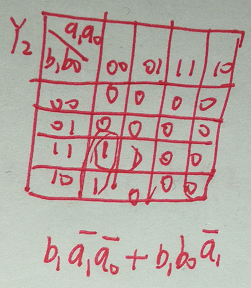 Y₂ a₁a₀
b₁b₀ 00 01 11 10
00 0 0 0 0
01 0 0 0 0
11 1 1 0 0
10 1 0 0 0
b₁a̅₁a̅₀ + b₁b₀a̅₁